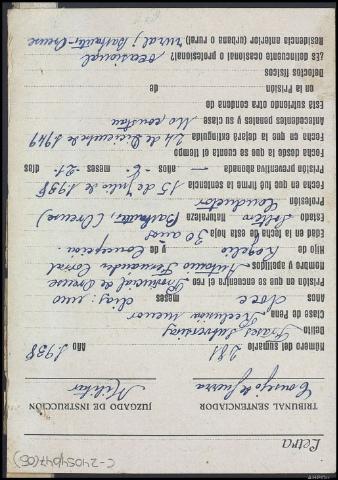 Letra
TRIBUNAL SENTENCIADOR JUZGADO DE INSTRUCCIÓN
Consejo de Guerra Militar
Número del sumario 281 Año 1938
Delito Frases subversivas
Clase de Pena Reclusión menor
Años doce meses días: uno
Prisión en que se encuentra el reo Provincial de Orense
Nombre y apellidos Antonio Fernández Corral
Hijo de Rogelio y de Concepción
Edad en la fecha de esta hoja 30 años
Estado Soltero Naturaleza (Orense)
Profesión Conductor
Fecha en que quedó firme la sentencia 15 de Julio de 1938
Prisión preventiva abonada — años - 6 - meses - 21 - días
Fecha desde la que se cuenta el tiempo
Fecha en que la dejará extinguida 24 de Diciembre 1949
Antecedentes penales y su clase No constan
Está sufriendo otra condena de
en la Prisión de
Defectos físicos
¿Es delincuente profesional o ocasional? ocasional
Residencia anterior (urbana o rural) rural; Orense
C-24054/047(05)
AHPOu